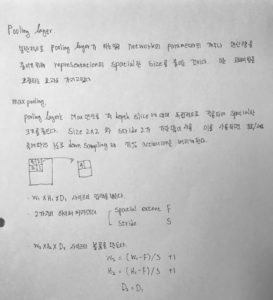 Pooling layer.
일반적으로 Pooling layer가 하는일은 network의 parameter의 개수나 연산량을
줄이기 위해 representation의 spatial한 size를 줄이는 것이다. 이는
조절하는 효과도 가지고있다.
max pooling.
pooling layer는 Max 연산을 각 depth slice에 대해 독립적으로 적용하여 spatial한
크기를 줄인다. Size 2x2 와 stride 2가 가장 많이 사용.
down sampling 75% activation은 버려지게된다.
· W₁ X H₁ X D₁ 사이즈의 입력을 받는다.
· 2가지의 하이퍼 파라미터 { spatial extent F
stride S
· W₂ X H₂ X D₂ 사이즈의 볼륨을 만든다.
W₂ = (W₁-F)/S +1
H₂ = (H₁-F)/S +1
D₂ = D₁